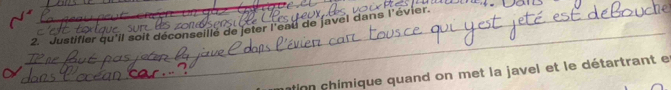 c'est toxique sur les zones sensible (les yeux,
2. Justifier qu'il soit déconseillé de jeter l'eau de javel dans l'évier.
Il ne faut pas jeter la javel dans l'évier car tousce qui yest jeté est debouche
dans l'océan. car...?
chimique quand on met la javel et le détartrant e